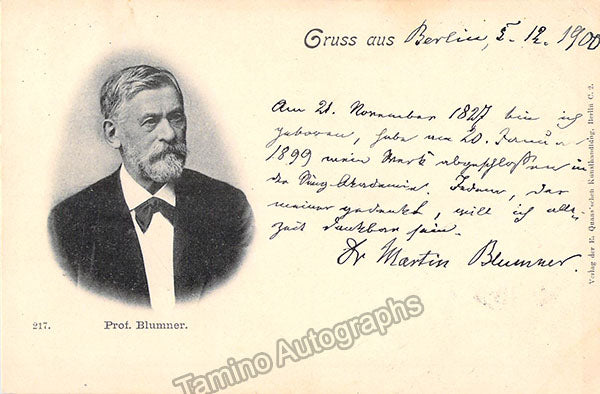 Gruss aus Berlin, 5. 12. 1900
Am 21. November 1827 bin ich
geboren, habe am 20. Januar
1899 mein Werk abgeschloßen in
der Sing-Akademie. Jedem, der
meiner gedenkt, will ich alle-
zeit dankbar sein.
Dr Martin Blumner.
217. Prof. Blumner.
Verlag der E. Quaas'schen Kunsthandlung, Berlin C. 2.
Tamino Autographs